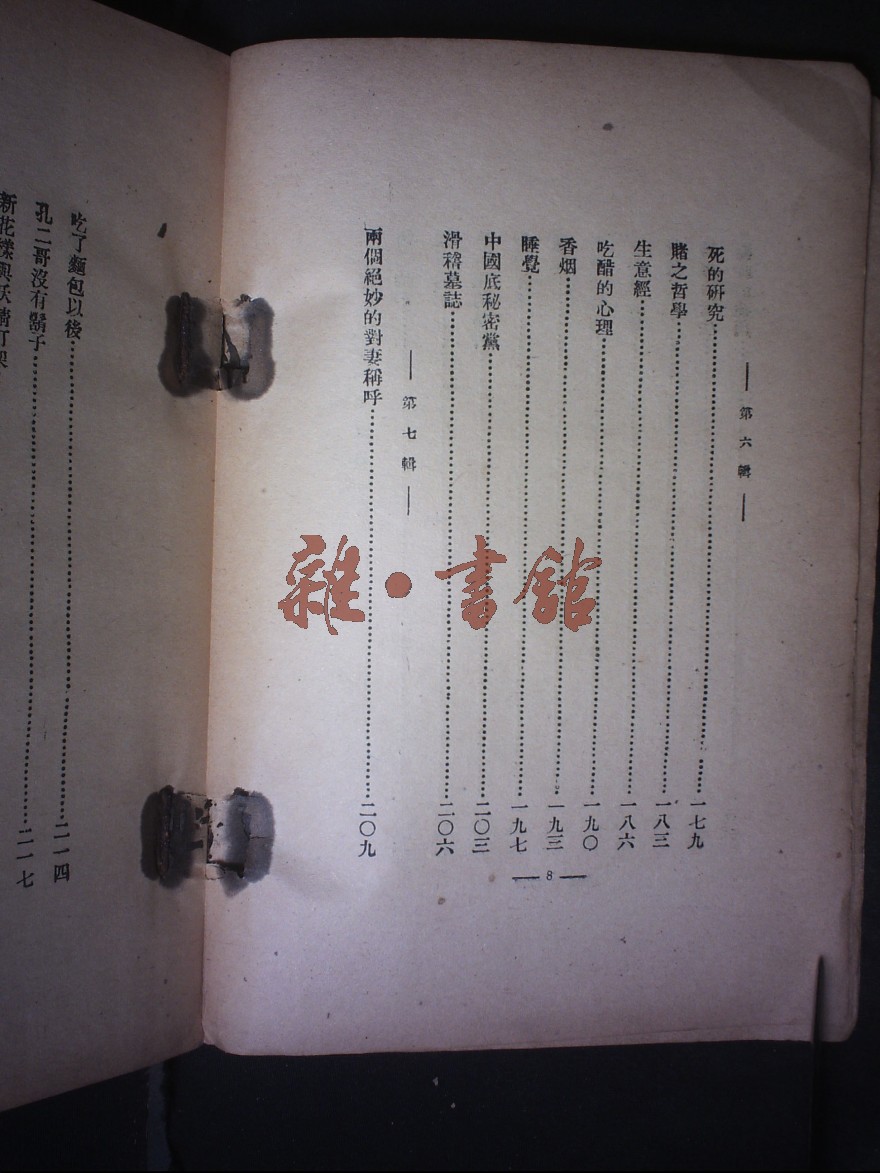 第六輯
死的研究一七九
賭之哲學一八三
生意經一八六
吃醋的心理一九〇
香烟一九三
睡覺一九七
中國底秘密黨二〇三
滑稽墓誌二〇六
第七輯
兩個絕妙的對妻稱呼二〇九
8
吃了麵包以後二一四
孔二哥沒有鬍子二一七
新花樣與妖精打架
雜·書館